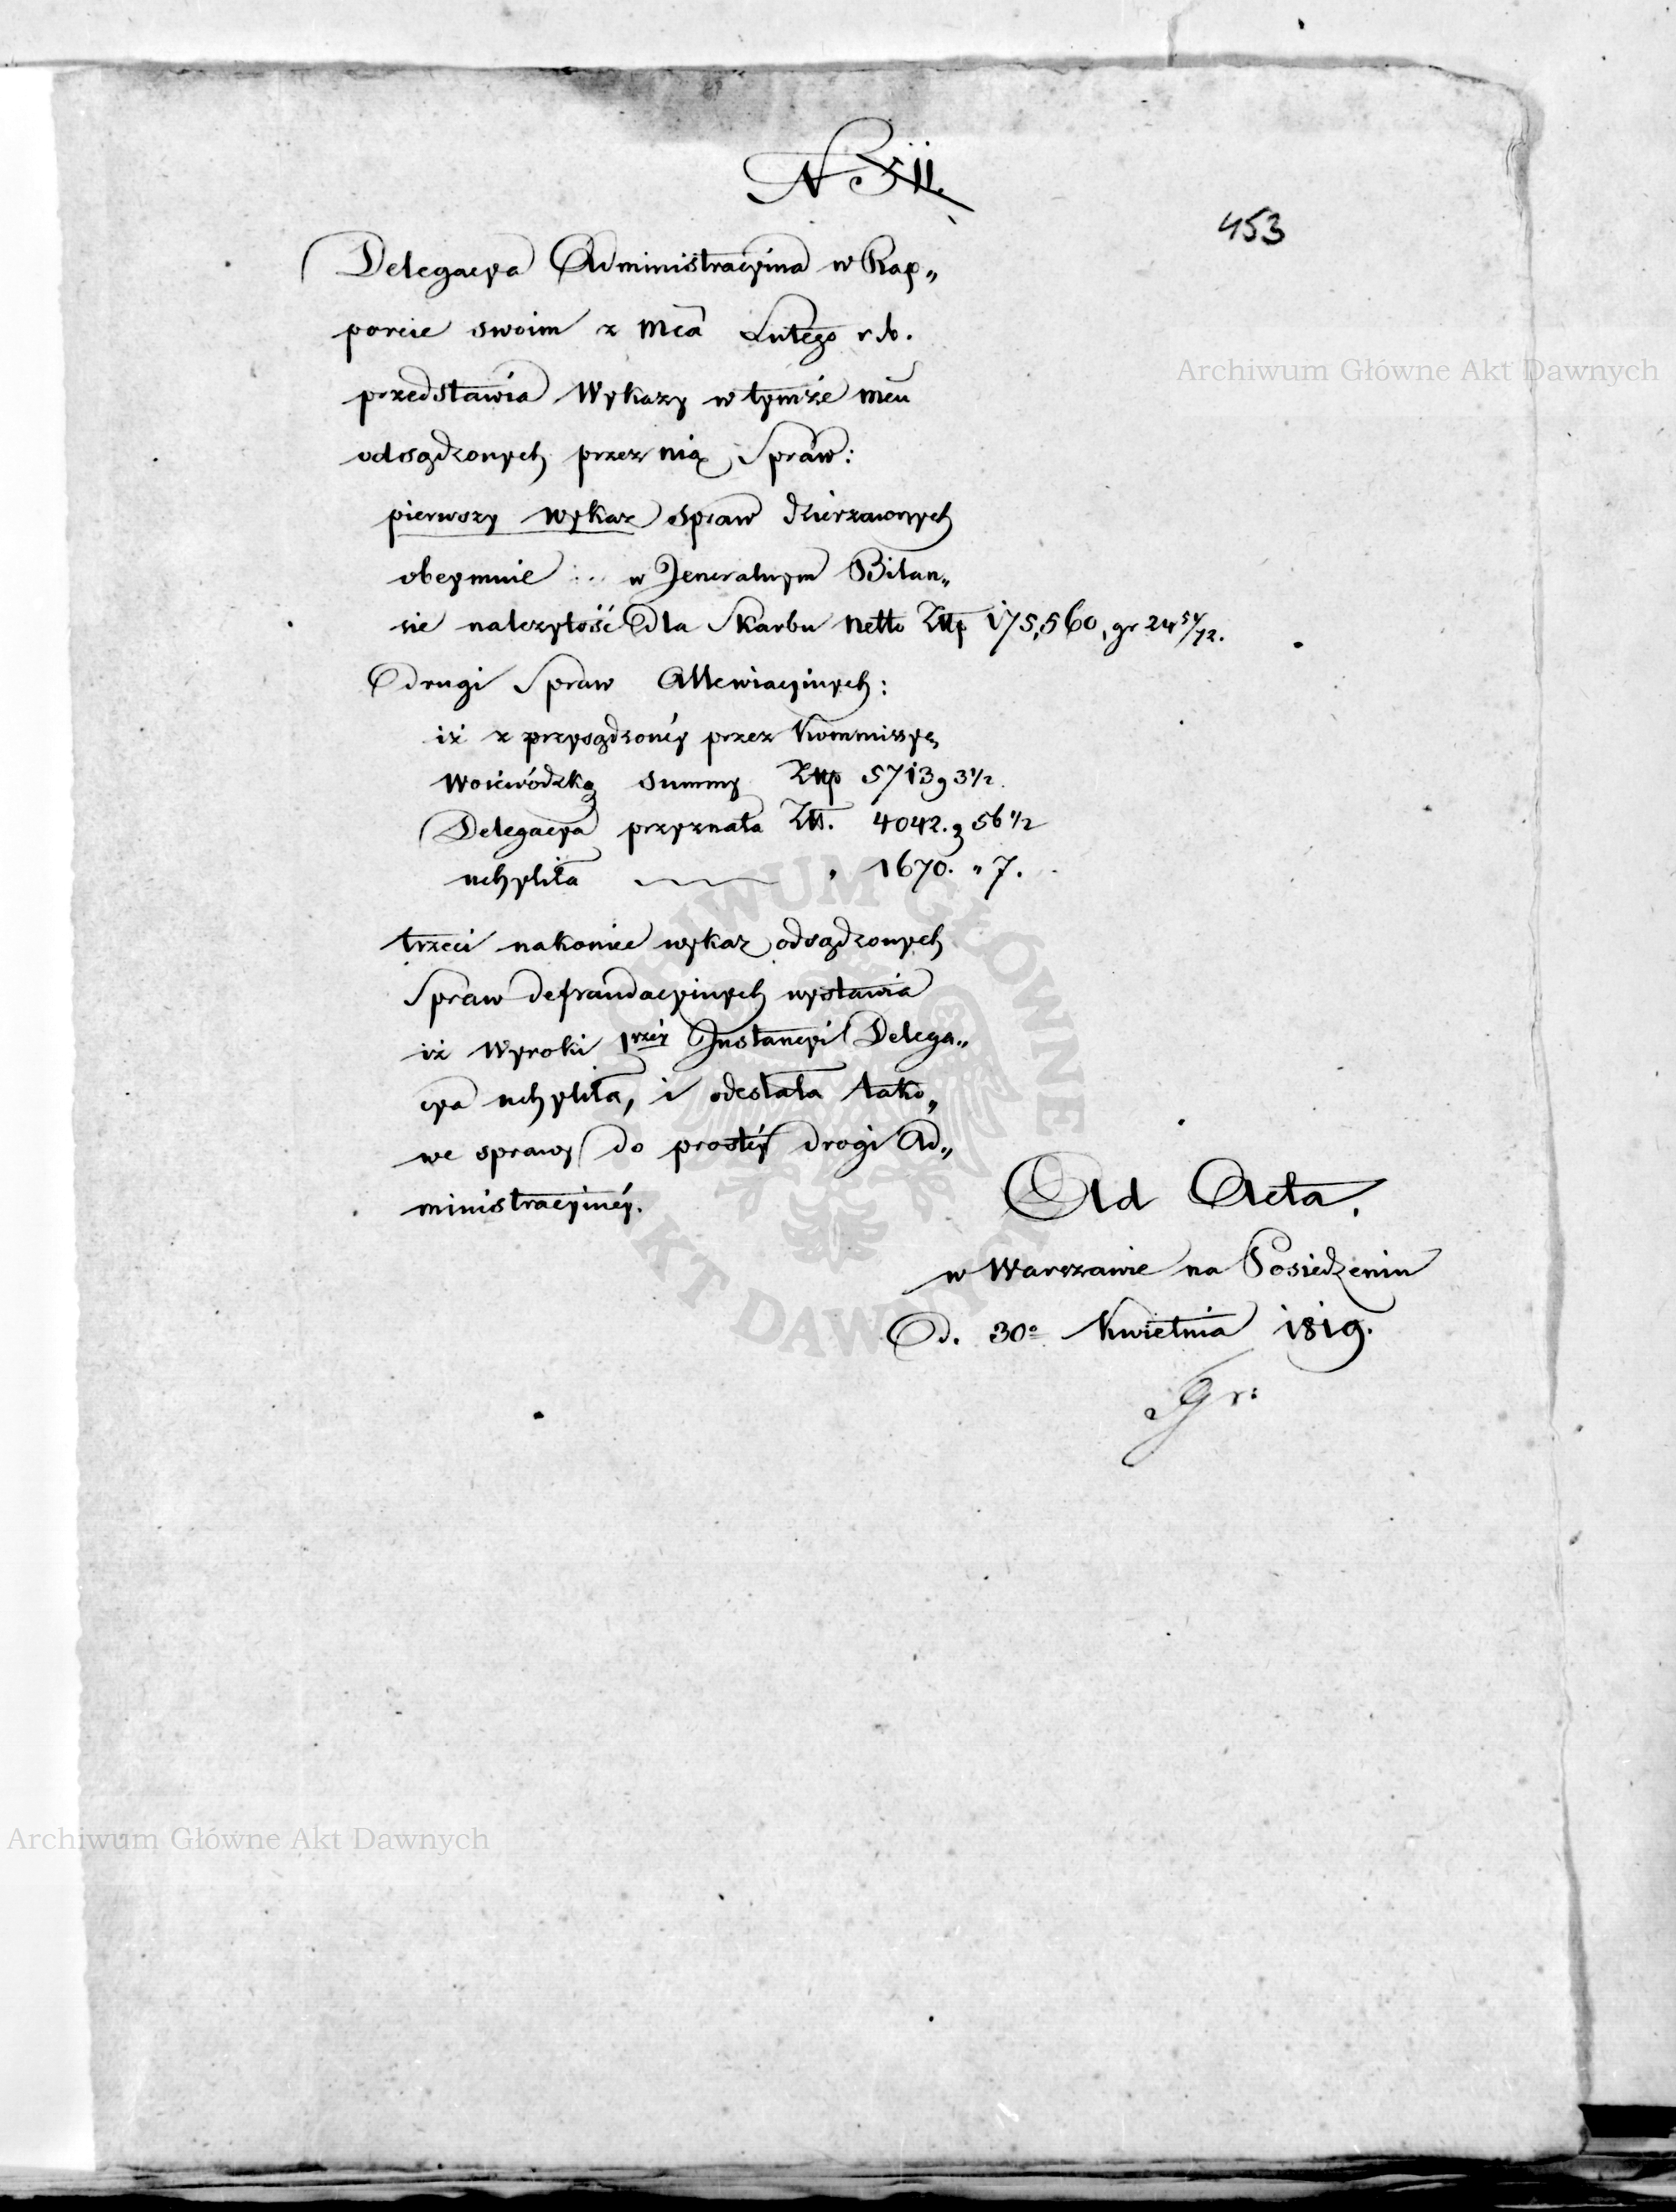 N XII.
453
Delegacya Administracyina w Rap„
porcie swoim z mca Lutego r. b.
przedstawia Wykazy w tymże mcu
odsądzonych przez nią Spraw:
pierwszy wykaz spraw dzierżawnych
obeymuie w Jeneralnym Bilan„
sie należytość dla Skarbu netto Złłp 175,560, gr 24 54/72.
drugi Spraw Allewiacyinych:
iż z przysądzonéy przez Kommissyę
Woiewódzką summy Złłp 5713 g 3 1/2.
Delegacya przyznała Złł. 4042. g 56 1/2
uchyliła " 1670. " 7.
trzeci nakoniec wykaz odsądzonych
Spraw defraudacyinych wystawia
iż Wyroki 1rzéy Instancyi Delega„
cya uchyliła, i odesłała tako„
we sprawy do prostéy drogi Ad„
ministracyinéy.
Ad Acta.
w Warszawie na Posiedzeniu
D. 30º Kwietnia 1819.
Gr:
Archiwum Główne Akt Dawnych
Archiwum Główne Akt Dawnych
ARCHIWUM GŁÓWNE AKT DAWNYCH